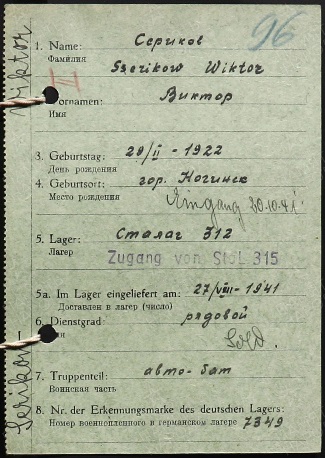 96
Viktor
1. Name: Сериков
Фамилия
Szerikow Wiktor
III
Vornamen: Виктор
Имя
3. Geburtstag: 28/II - 1922
День рождения
4. Geburtsort: гор. Ногинск
Место рождения
Eingang 20.10.41
5. Lager: Сталаг 312
Лагер
Zugang von Stal. 315
5a. Im Lager eingeliefert am: 27/VIII - 1941
Доставлен в лагер (число)
6. Dienstgrad: рядовой
Sold.
7. Truppenteil: авто-бат
Воинская часть
8. Nr. der Erkennungsmarke des deutschen Lagers:
Номер военнопленного в германском лагере 7349
Serikow